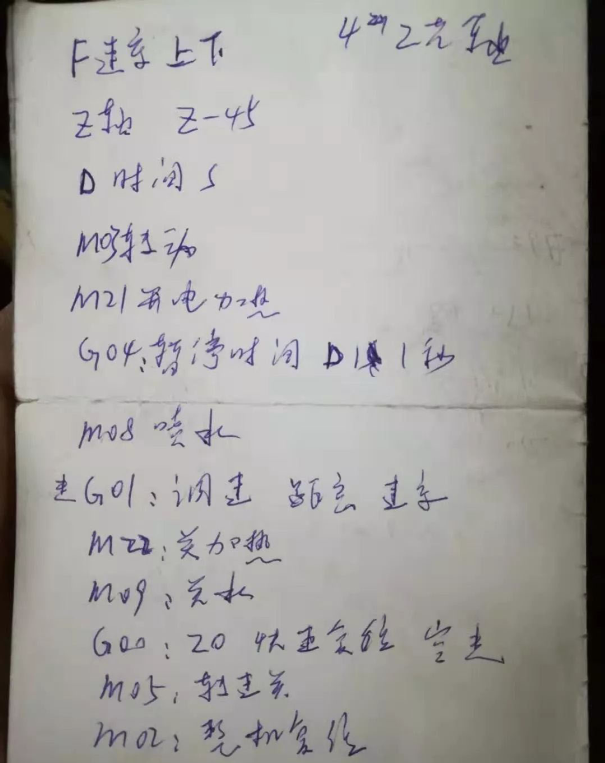 F速率上下
Z轴 Z-45
D 时间 S
M03转动
M21开电加热
G04:暂停时间 D1 1秒
M08 喷水
G01:调速 距离 速率
M22:关加热
M09:关水
G00:Z0 快速复位 空走
M05:转速关
M02:整机复位